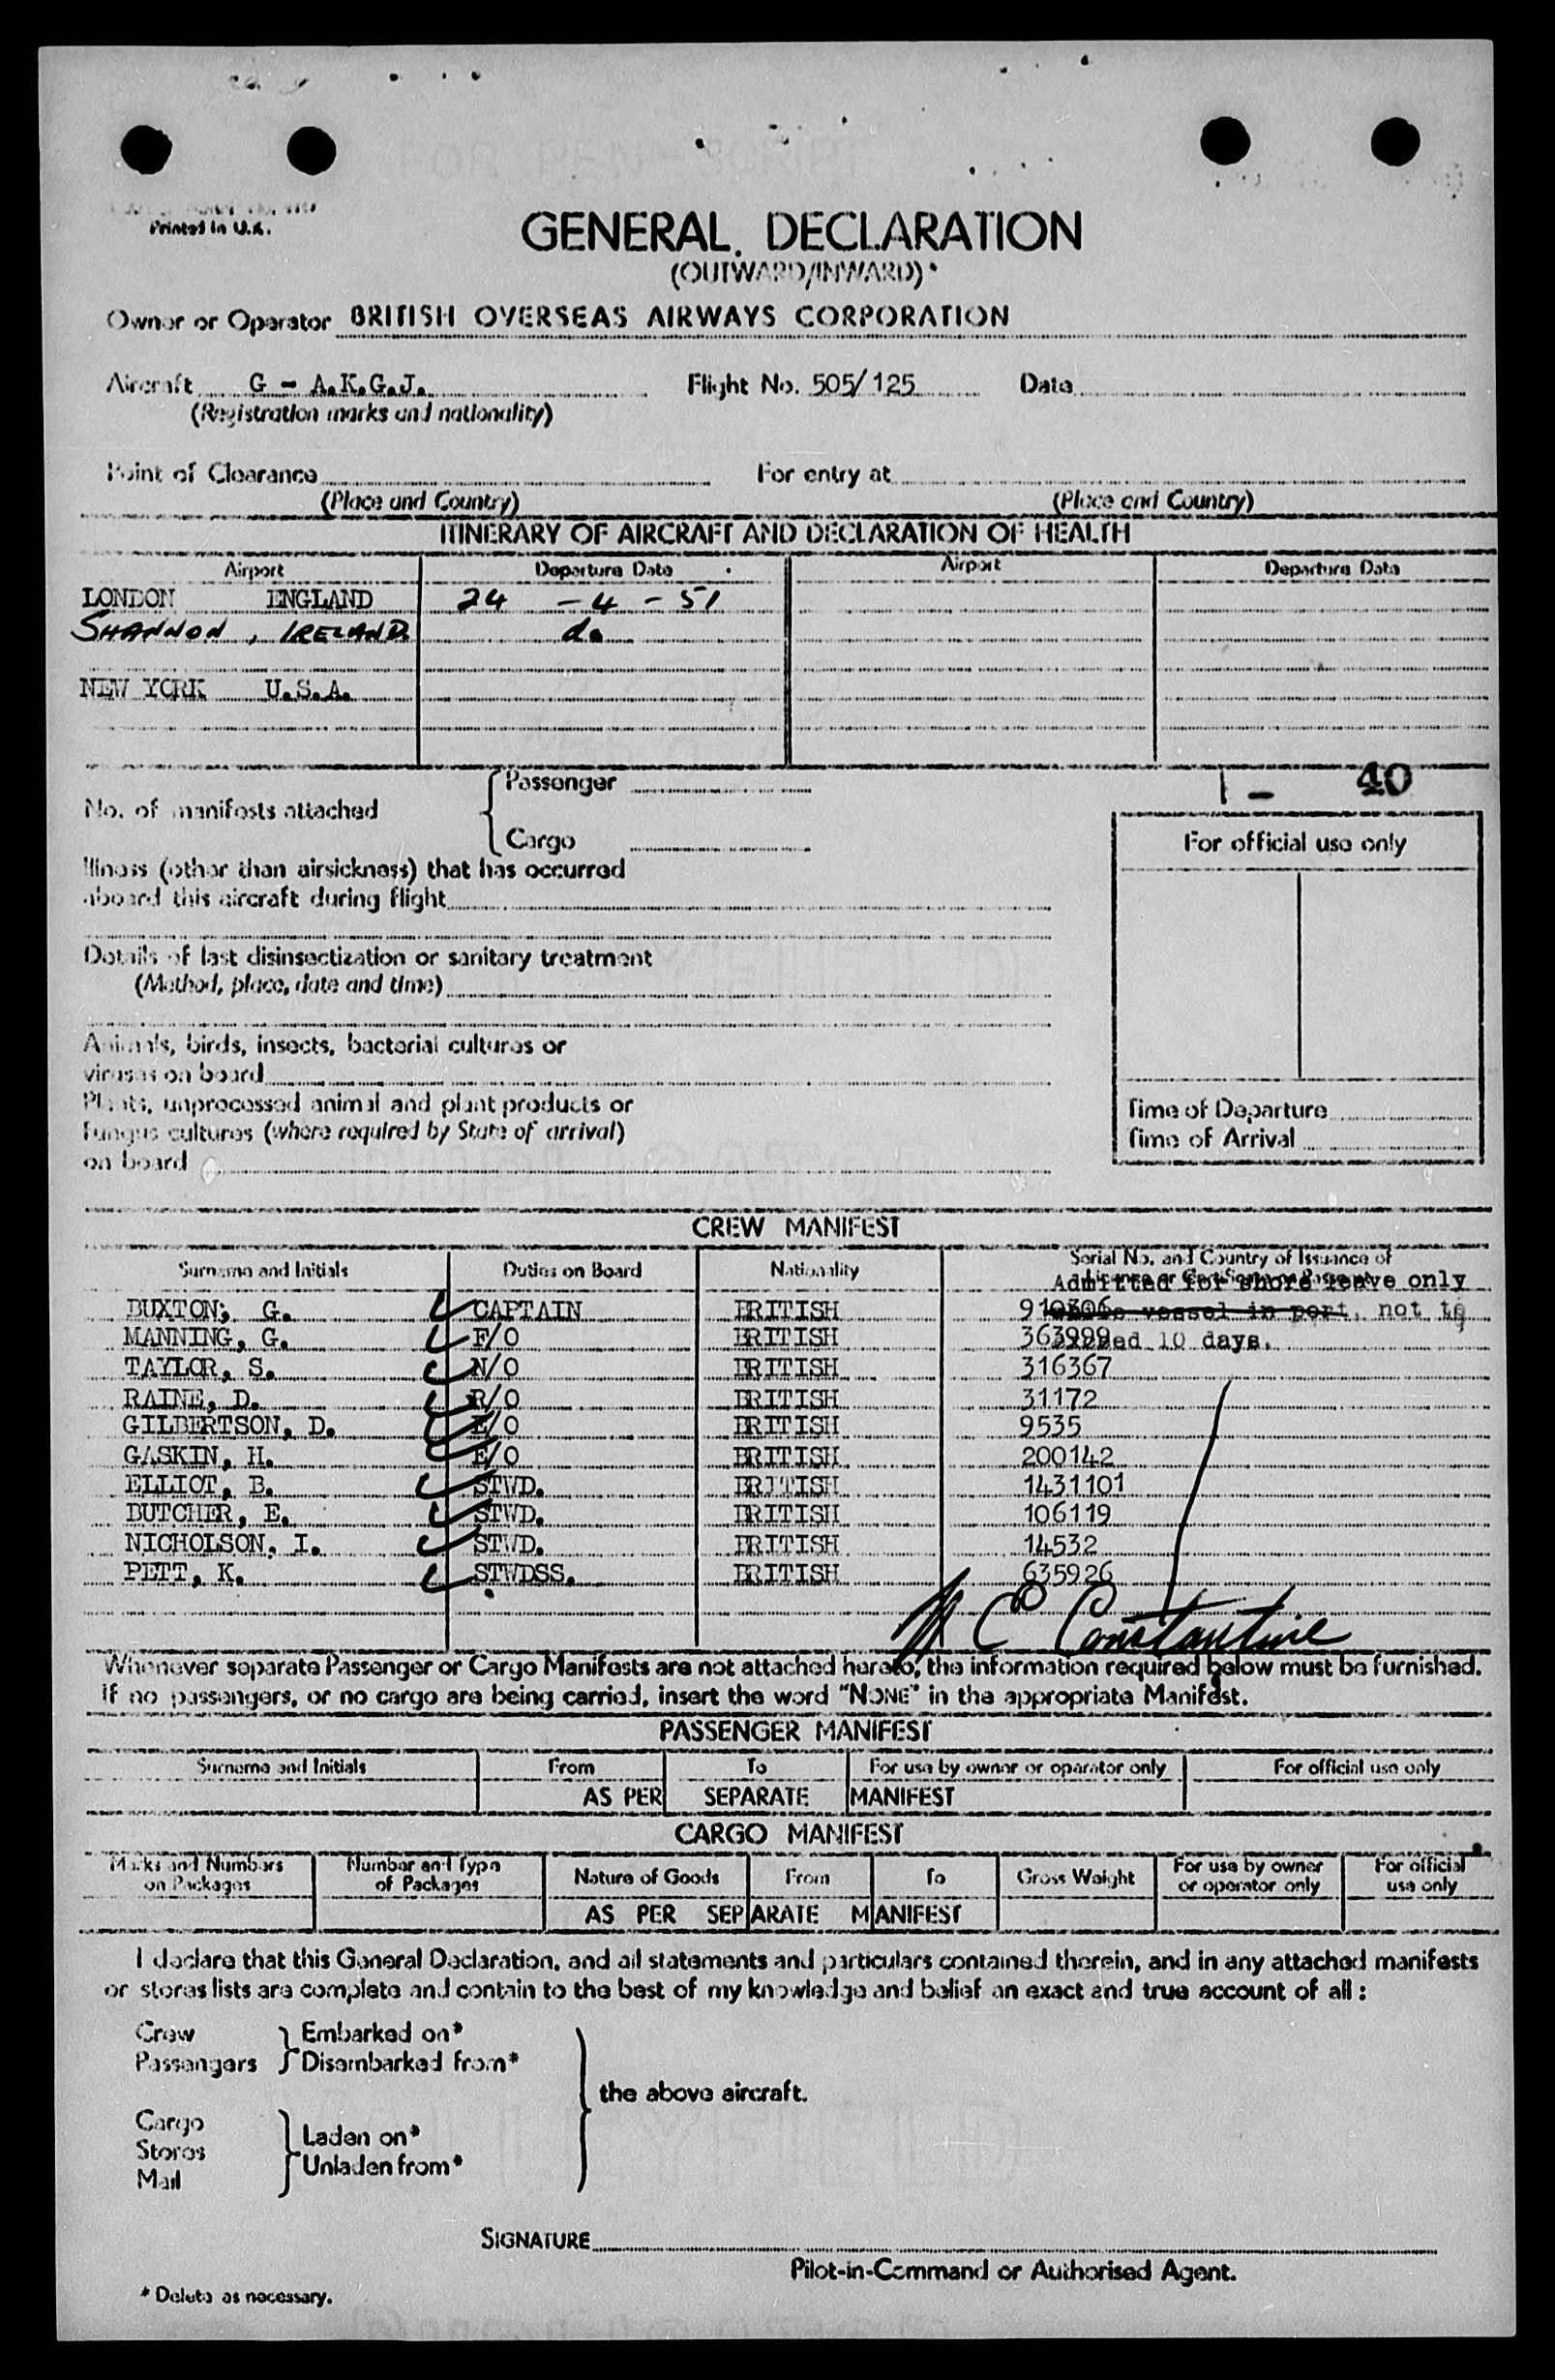 Printed in U.K.
GENERAL DECLARATION
(OUTWARD/INWARD)*
Owner or Operator BRITISH OVERSEAS AIRWAYS CORPORATION
Aircraft G - A.K.G.J. Flight No. 505/125 Date
(Registration marks and nationality)
Point of Clearance For entry at
(Place and Country) (Place and Country)
ITINERARY OF AIRCRAFT AND DECLARATION OF HEALTH
Airport Departure Date Airport Departure Date
LONDON ENGLAND 24 - 4 - 51
SHANNON, IRELAND. do
NEW YORK U.S.A.
1 - 40
No. of manifests attached { Passenger
Cargo
For official use only
Illness (other than airsickness) that has occurred
aboard this aircraft during flight
Details of last disinsectization or sanitary treatment
(Method, place, date and time)
Animals, birds, insects, bacterial cultures or
viruses on board
Plants, unprocessed animal and plant products or
Fungus cultures (where required by State of arrival)
on board
Time of Departure
Time of Arrival
CREW MANIFEST
Surname and Initials Duties on Board Nationality Serial No. and Country of Issuance of
Admitted for shore leave only
BUXTON, G. CAPTAIN BRITISH 910306 vessel in port, not to
MANNING, G. F/O BRITISH 363999 10 days.
TAYLOR, S. N/O BRITISH 316367
RAINE, D. R/O BRITISH 31172
GILBERTSON, D. E/O BRITISH 9535
GASKIN, H. E/O BRITISH 200142
ELLIOT, B. STWD. BRITISH 1431101
BUTCHER, E. STWD. BRITISH 106119
NICHOLSON, I. STWD. BRITISH 14532
PETT, K. STWDSS. BRITISH 635926
C Constantine
Whenever separate Passenger or Cargo Manifests are not attached hereto, the information required below must be furnished.
If no passengers, or no cargo are being carried, insert the word "NONE" in the appropriate Manifest.
PASSENGER MANIFEST
Surname and Initials From To For use by owner or operator only For official use only
AS PER SEPARATE MANIFEST
CARGO MANIFEST
Marks and Numbers on Packages Number and Type of Packages Nature of Goods From To Gross Weight For use by owner or operator only For official use only
AS PER SEPARATE MANIFEST
I declare that this General Declaration, and all statements and particulars contained therein, and in any attached manifests
or stores lists are complete and contain to the best of my knowledge and belief an exact and true account of all :
Crew } Embarked on*
Passengers } Disembarked from*
the above aircraft.
Cargo
Stores } Laden on*
Mail Unladen from*
SIGNATURE
Pilot-in-Command or Authorised Agent.
* Delete as necessary.